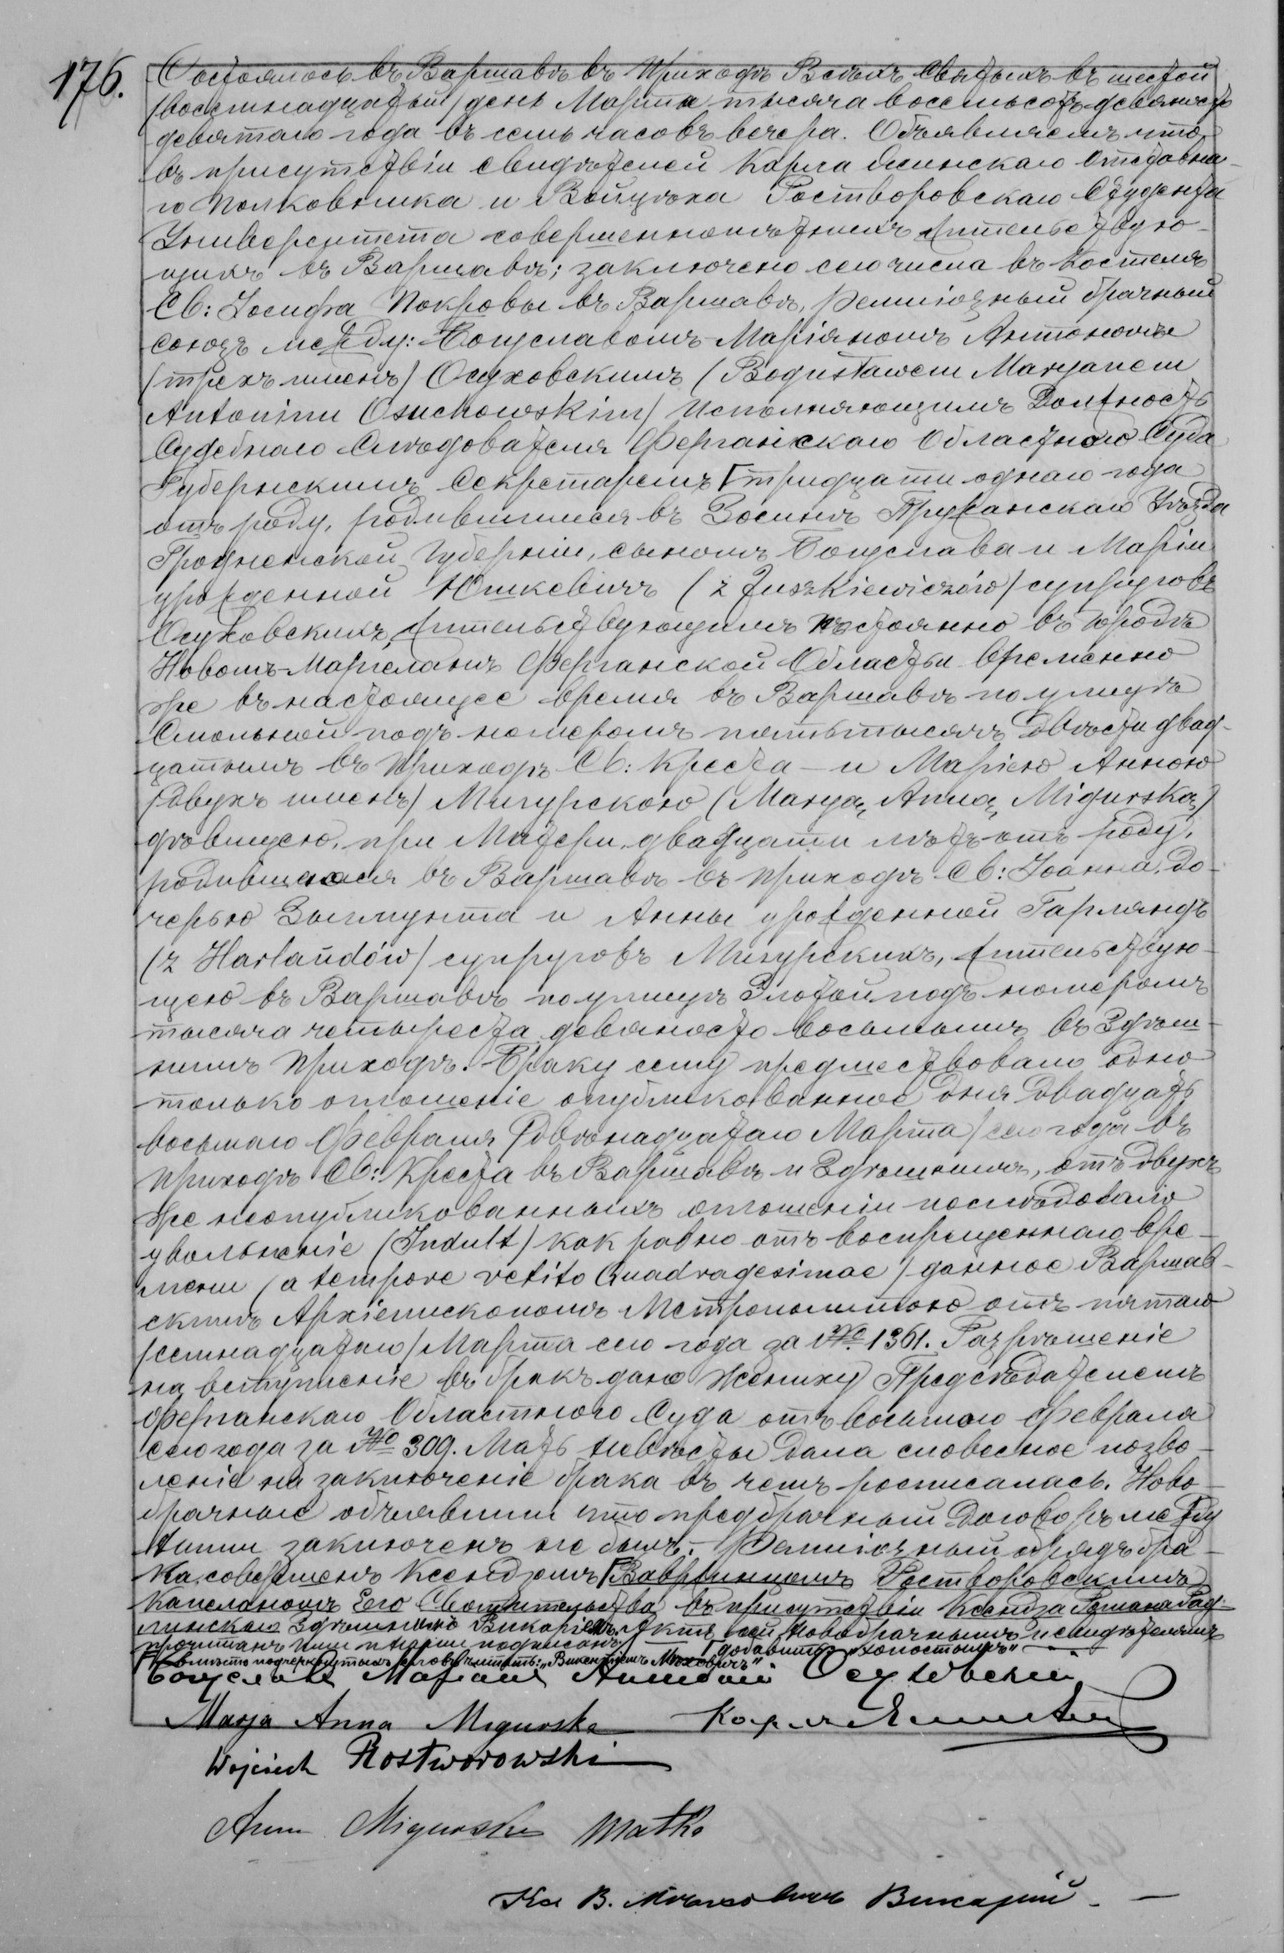 176.
Состоялось въ Варшавѣ въ Приходѣ Всѣхъ Святыхъ въ шестой
/восемнадцатый/ день Марта тысяча восемьсотъ девяносто
девятаго года въ семь часовъ вечера. Объявляемъ что
въ присутствіи свидѣтелей Карла отставна-
го Полковника и Войцѣха Ростворовскаго Студента
Университета совершеннолѣтнихъ жительствую-
щихъ въ Варшавѣ; заключено сего числа въ Костелѣ
Св: Іосифа Покровы въ Варшавѣ, Религіозный брачный
союзъ между: Богуславомъ Маріяномъ Антономъ
/трехъ именъ/ Осуховскимъ /Bogusławem Maryanem
Antonim Osuchowskim/ Исполняющимъ Должность
Судебнаго Слѣдователя Ферганскаго Областного Суда
Губернскимъ Секретаремъ Г тридцати одного года
отъ роду, родившимся въ Пружанскаго Уѣзда
Гродненской Губерніи, сыномъ Богуслава и Маріи
урожденной Юшкевичъ /z Juszkiewiczów/ супруговъ
Осуховскихъ, жительствующимъ постоянно въ городѣ
Новомъ-Маргеланѣ Ферганской Области временно
же въ настоящее время въ Варшавѣ по улицѣ
Смольной подъ номеромъ пятьтысячъ двѣсти двад-
цатымъ въ Приходѣ Св: Креста – и Маріею Анною
/двухъ именъ/ Мигурскою /Maryą Anną Migurską/
дѣвицею, при Матери, двадцати лѣтъ отъ роду,
родившеюся въ Варшавѣ въ Приходѣ Св: Іоанна, до-
черью Зыгмунта и Анны урожденной Гарляндъ
/z Harlandów/ супруговъ Мигурскихъ, жительствую-
щею въ Варшавѣ по улицѣ Злотой подъ номеромъ
тысяча четыреста девяносто восьмымъ въ Здѣш-
немъ Приходѣ. Браку сему предшествовало одно
только оглашеніе опубликованное дня двадцать
восьмаго Февраля /двѣнадцатаго Марта/ сего года въ
Приходѣ Св: Креста въ Варшавѣ и Здѣшнемъ, отъ двухъ
же неопубликованныхъ оглашеній послѣдовало
увольненіе /Indult/ какъ равно отъ воспрещеннаго вре-
мени /a tempore vetito Quadragesimae/ данное Варшав-
скимъ Архіепископомъ Метрополитою отъ пятаго
/семнадцатаго/ Марта сего года за № 1361. Разрѣшеніе
на вступленіе въ бракъ дано Жениху Предсѣдателемъ
Ферганскаго Областного Суда отъ восьмого Февраля
сего года за № 309. Мать Невѣсты дала словесное позво-
леніе на заключеніе брака въ чемъ росписалась. Ново-
брачные объявили что предбрачный договоръ между
ними заключенъ не былъ. Религіозный обрядъ бра-
ка совершенъ Ксендзомъ Г Вавржинцомъ Ростворовскимъ
Капелланомъ Его Святительства въ присутствіи Ксендза Романа
Здѣшняго Викарія. Актъ сей Новобрачнымъ и свидѣтелямъ
прочитанъ Ими и Нами подписанъ. Г добавить „холостымъ“
Г вмѣсто подчеркнутыхъ словъ читать: „Викентіемъ Мѣховичъ“
Богуславъ Маріанъ Антоній Осуховскій
Marja Anna Migurska Карлъ
Wojciech Rostworowski
Anna Migurska Matka
Кс В. Мѣховичъ Викарій. –